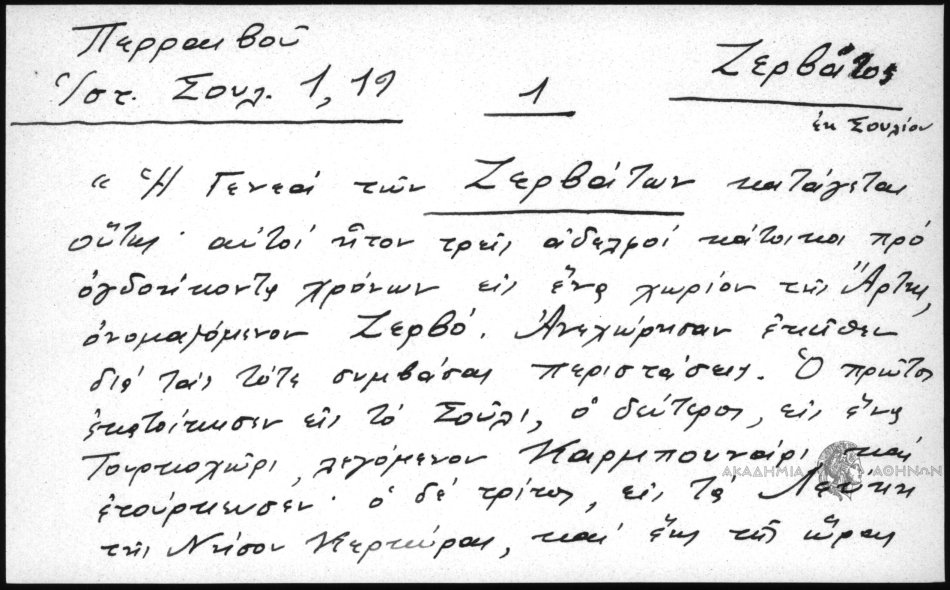 Περραιβοῦ
Ἱστ. Σουλ. 1, 19
1
Ζερβᾶτος
ἐκ Σουλίου
« Ἡ Γενεά τῶν Ζερβάτων κατάγεται
οὕτως· αὐτοί ἦτον τρεῖς ἀδελφοί κάτοικοι πρό
ὀγδοήκοντα χρόνων εἰς ἕνα χωρίον τῆς Ἄρτης,
ὀνομαζόμενον Ζερβό. Ἀνεχώρησαν ἐκεῖθεν
διά τάς τότε συμβάσας περιστάσεις. Ὁ πρῶτος
ἐκατοίκησεν εἰς τό Σοῦλι, ὁ δεύτερος, εἰς ἕνα
Τουρκοχῶρι, λεγόμενον Καρμπουνάρι καί
ἐτούρκευσεν· ὁ δέ τρίτος, εἰς τά Λεύκη
τῆς Νήσου Κερκύρας, καί ἕως τῆς ὥρας
ΑΚΑΔΗΜΙΑ ΑΘΗΝΩΝ